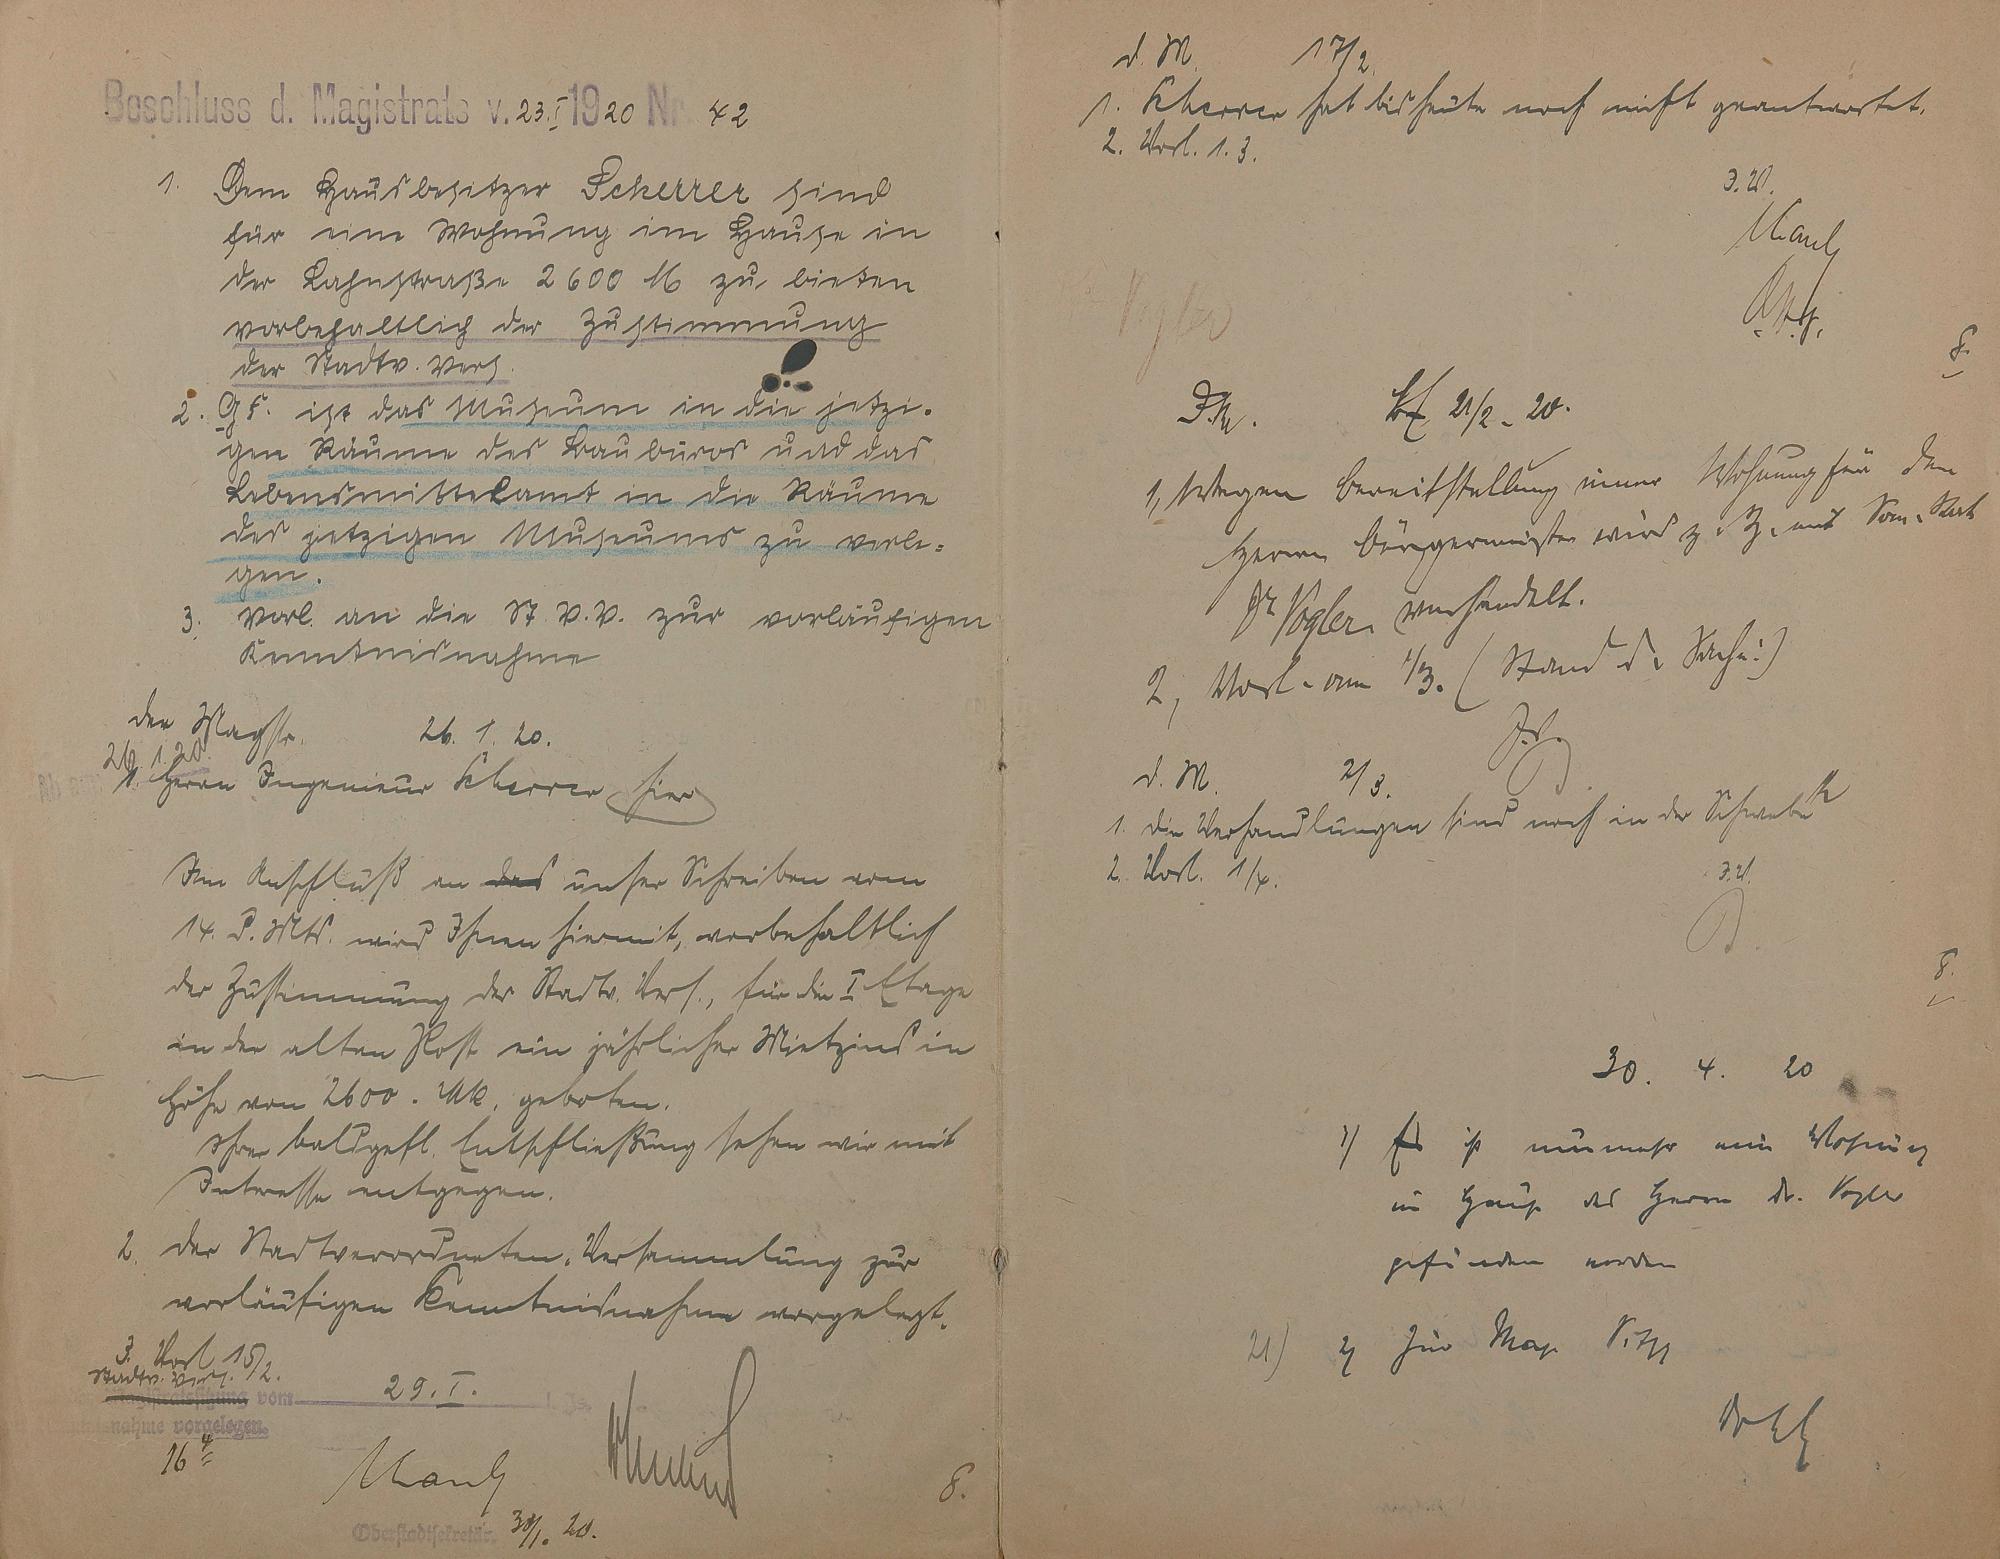 Beschluss d. Magistrats v. 23. I 1920 Nr. 42
1. Dem Hausbesitzer Scherrer sind
für eine Wohnung im Hause in
der Bahnstraße 2600 M zu bieten
vorbehaltlich der Zustimmung
der Stadtv. Vers.
2. Gf. ist das Museum in die jetzi-
gen Räume des Baubüros und das
Lebensmittelamt in die Räume
des jetzigen Museums zu verle-
gen.
3. Vorl. an die St. V. V. zur vorläufigen
Kenntnisnahme
Der Magistr. 26. 1. 20.
26. 1. 20.
1. Herrn Ingenieur Scherrer hier
Im Anschluß an das unser Schreiben vom
14. d. Mts. wird Ihnen hiermit, vorbehaltlich
der Zustimmung der Stadtv. Vers., für die I Etage
in der alten Post ein jährlicher Mietzins in
Höhe von 2600.- Mk. geboten.
Ihrer baldgefl. Entschließung sehen wir mit
Interesse entgegen.
2. Der Stadtverordneten-Versammlung zur
vorläufigen Kenntnisnahme vorgelegt.
3. Vorl. 15/2.
Stadtv. Vers.
vom 29. I. l. Js.
vorgelegen.
16 4
Oberstadtsekretär. 30/1. 20.
8.
d. M. 17/2.
1. Scherrer hat bis heute noch nicht geantwortet.
2. Vorl. 1. 3.
I. V.
Vogler
8.
21/2. 20.
1, Wegen Bereitstellung einer Wohnung für den
Herrn Bürgermeister wird z. Z. mit San. Rat
Dr Vogler verhandelt.
2, Vorl. am 1/3. (Stand d. Sache!)
J. V.
d. M. 2/3.
1. Die Verhandlungen sind noch in der Schwebe
2. Vorl. 1/4.
I. V.
8.
30. 4. 20
1) Es ist nunmehr eine Wohnung
im Hause des Herrn Dr. Vogler
gefunden worden
2) Zur Mag. Sitzg